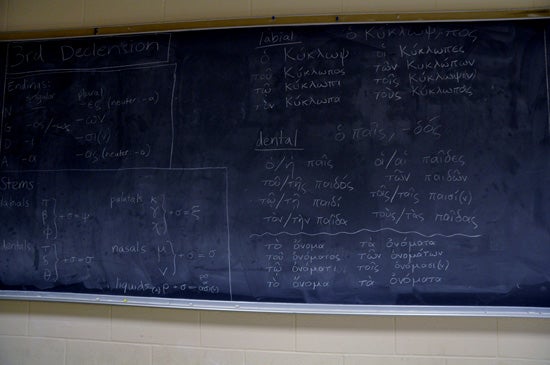 3rd Declention
Endings:
singular plural
N -ες (neuter -α)
G -ος/-ως -ων
D -ι -σι(ν)
A -α -ας (neuter: -α)
Stems
labials π β φ } + σ = ψ
palatals κ γ χ } + σ = ξ
dentals τ δ θ } + σ = σ
nasals μ ν } + σ = σ
liquids ρ + σ =
labial ὁ Κύκλωψ, πος
ὁ Κύκλωψ οἱ Κύκλωπες
τοῦ Κύκλωπος τῶν Κυκλώπων
τῷ Κύκλωπι τοῖς Κύκλωψι(ν)
τὸν Κύκλωπα τοὺς Κύκλωπας
dental ὁ παῖς, -δός
ὁ/ἡ παῖς οἱ/αἱ παῖδες
τοῦ/τῆς παιδός τῶν παιδῶν
τῷ/τῇ παιδί τοῖς/ταῖς παισί(ν)
τὸν/τὴν παῖδα τοὺς/τὰς παῖδας
τὸ ὄνομα τὰ ὀνόματα
τοῦ ὀνόματος τῶν ὀνομάτων
τῷ ὀνόματι τοῖς ὀνόμασι(ν)
τὸ ὄνομα τὰ ὀνόματα